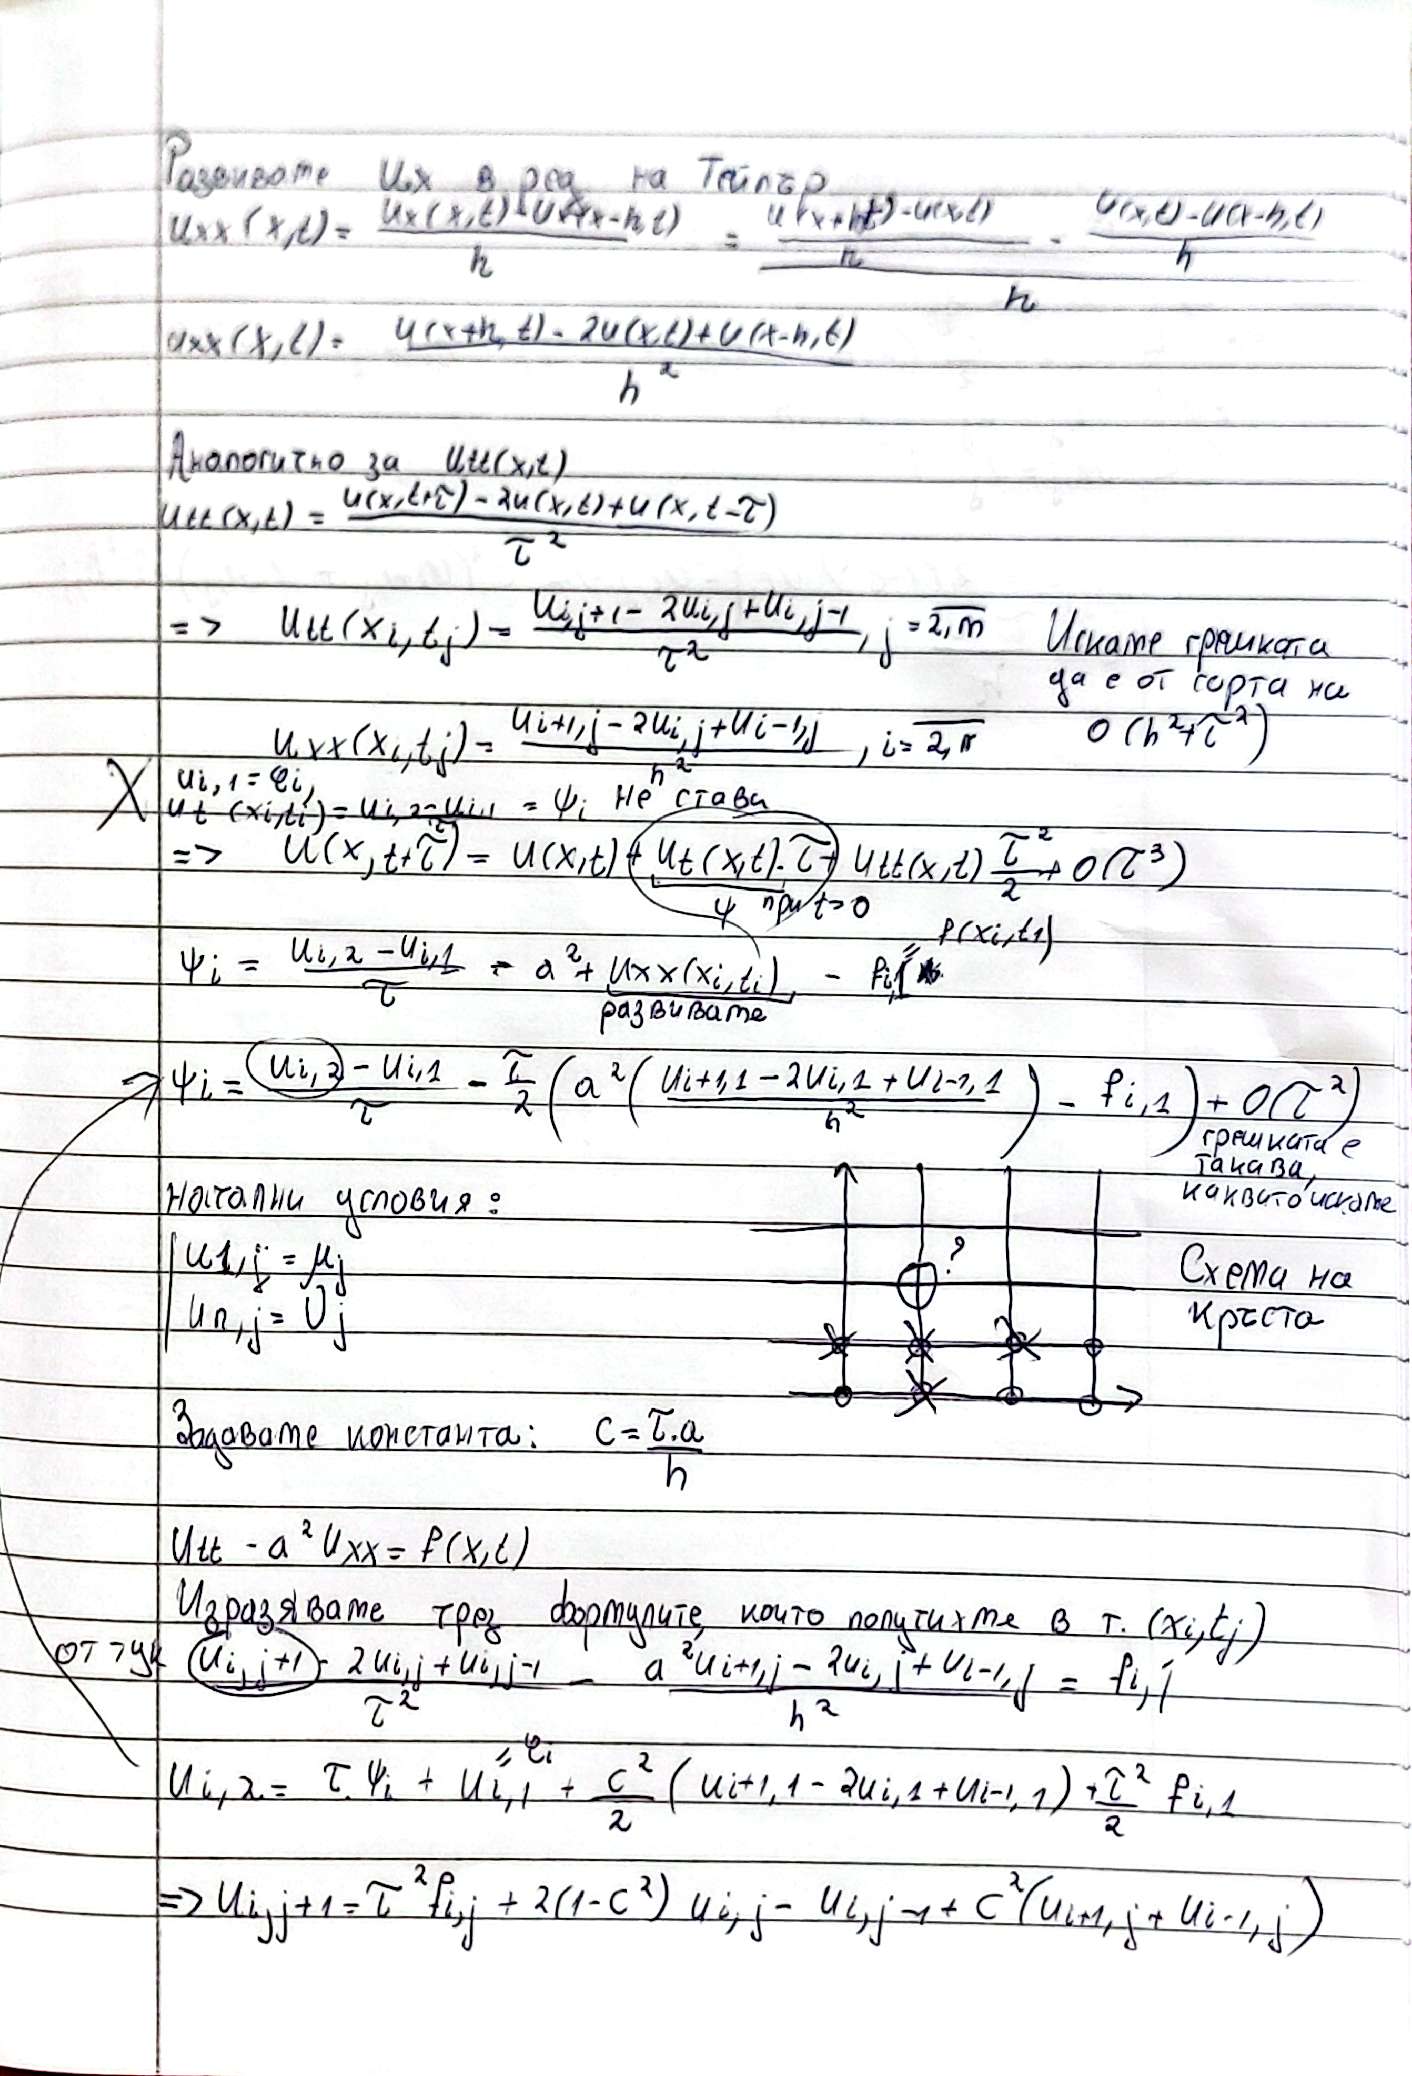 Развиваме Ux в ред на Тейлър
Uxx(x,t) = (Ux(x,t) - Ux(x-h,t))/h = ((U(x+h,t) - U(x,t))/h - (U(x,t) - U(x-h,t))/h)/h
Uxx(x,t) = (U(x+h,t) - 2U(x,t) + U(x-h,t))/h²
Аналогично за Utt(x,t)
Utt(x,t) = (U(x,t+τ) - 2U(x,t) + U(x,t-τ))/τ²
=> Utt(xi,tj) = (Ui,j+1 - 2Ui,j + Ui,j-1)/τ², j = 2,m
Искаме грешката
да е от сорта на
O(h²+τ²)
Uxx(xi,tj) = (Ui+1,j - 2Ui,j + Ui-1,j)/h², i = 2,n
X Ui,1 = φi,
Ut(xi,ti) = (Ui,2 - Ui,1)/τ = ψi Не става
=> U(x,t+τ) = U(x,t) + Ut(x,t).τ + Utt(x,t) τ²/2 + O(τ³)
ψ при t=0
ψi = (Ui,2 - Ui,1)/τ - a² + Uxx(xi,ti) - fi,1 = f(xi,t1)
развиваме
ψi = (Ui,2 - Ui,1)/τ - τ/2 (a² ((Ui+1,1 - 2Ui,1 + Ui-1,1)/h²) - fi,1) + O(τ²)
грешката е
такава,
каквито искаме
начални условия:
U1,j = μj
Un,j = υj
?
Схема на
кръста
Задаваме константа: C = τ.a/h
Utt - a²Uxx = f(x,t)
Изразяваме чрез формулите, които получихме в т. (xi,tj)
от тук (Ui,j+1 - 2Ui,j + Ui,j-1)/τ² - a² (Ui+1,j - 2Ui,j + Ui-1,j)/h² = fi,j
Ui,2 = τ.ψi + Ui,1 = φi + C²/2 (Ui+1,1 - 2Ui,1 + Ui-1,1) + τ²/2 fi,1
=> Ui,j+1 = τ² fi,j + 2(1-C²) Ui,j - Ui,j-1 + C²(Ui+1,j + Ui-1,j)